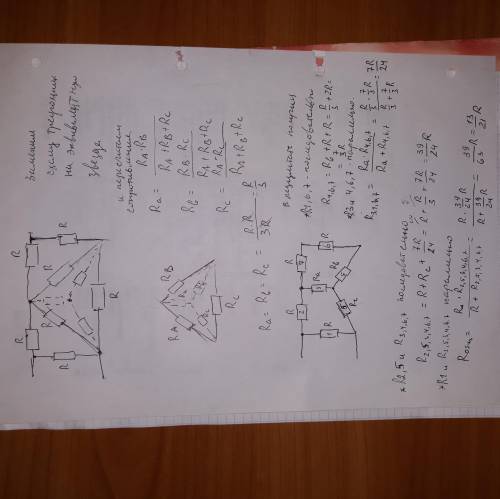 Заменим
схему треугольник
на эквивалентную
звезда
R
R
R
R
R
R
R
и пересчитаем
сопротивления
Ra = RA·RB / (RA + RB + RC)
Rв = RB·RC / (RA + RB + RC)
Rc = RA·RC / (RA + RB + RC)
RB
RA
RC
Ra = Rв = Rc = R·R / 3R = R/3
в результате получим
*R1,6,7 - последовательно
R4,6,7 = Rв + R + R = R/3 + 2R = 7/3 R
*R3 и 4,6,7 параллельно
R3,4,6,7 = Ra·R4,6,7 / (Ra + R4,6,7) = (R/3 · 7/3 R) / (R/3 + 7/3 R) = 7R/24
*R2,5 и R3,4,6,7 последовательно
R2,5,3,4,6,7 = R + Rc + 7R/24 = R + R/3 + 7/24 R = 39/24 R
*R1 и R2,5,3,4,6,7 параллельно
Rобщ = R1·R2,5,3,4,6,7 / (R + R2,5,3,4,6,7) = (R · 39/24 R) / (R + 39/24 R) = 39/63 R = 13/21 R